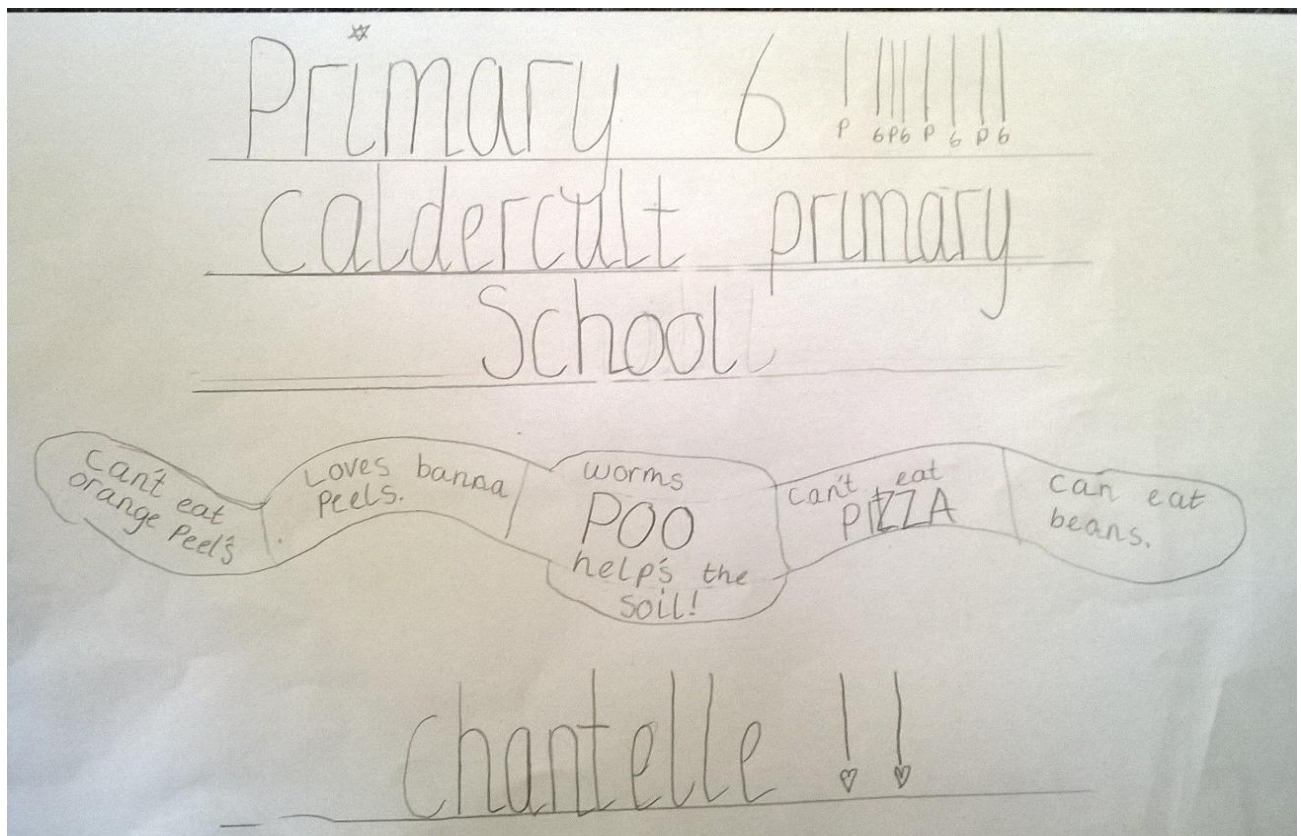 Primary 6 ! !!! ! ! ! !
P 6P6 P 6 P 6
Caldercult primary
School
Can't eat
orange Peel's
Loves banna
Peels.
worms
POO
help's the
soil!
Can't eat
PIZZA
Can eat
beans.
Chantelle !!